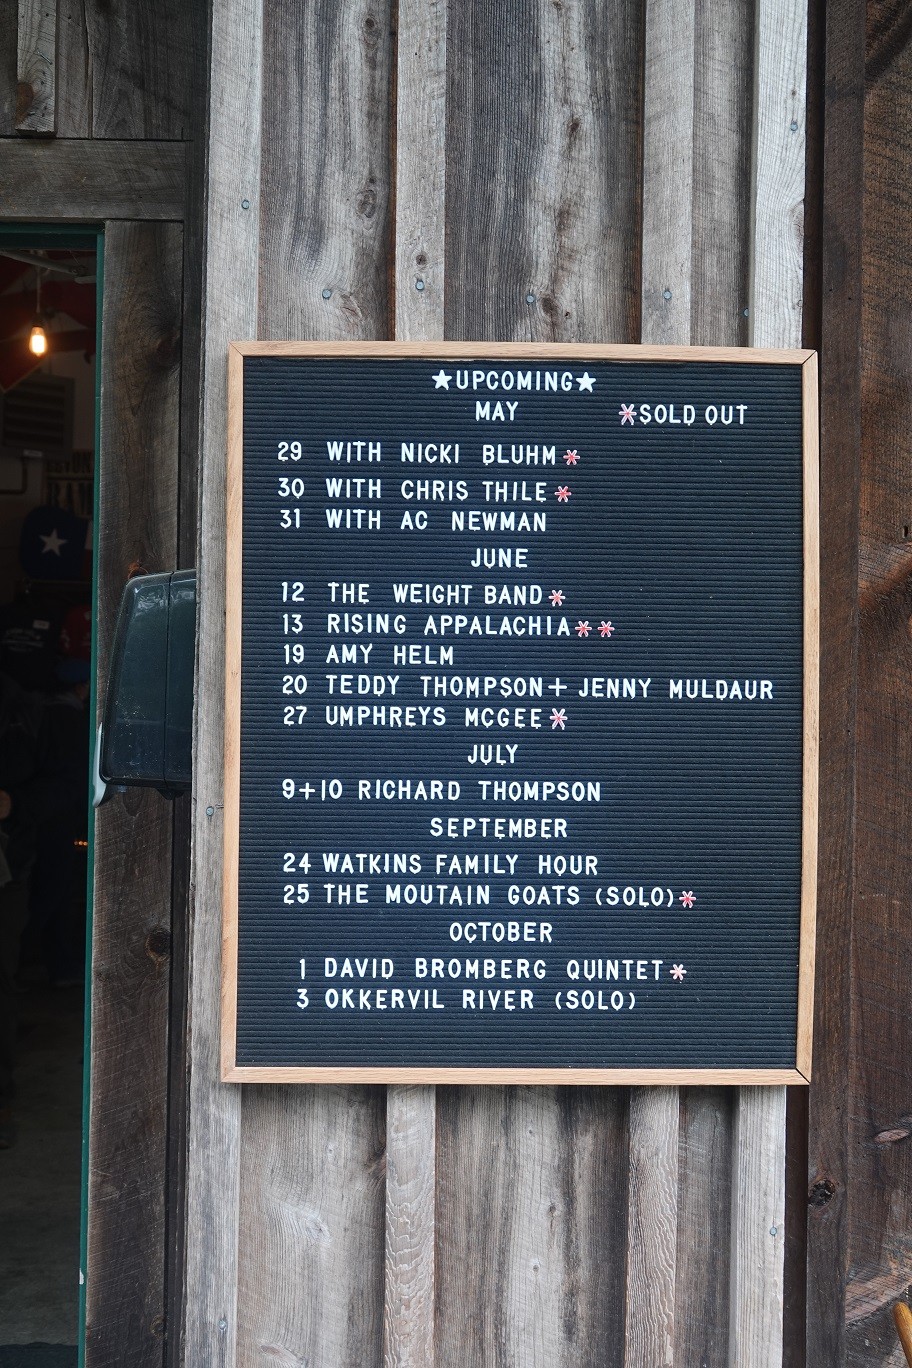 ★UPCOMING★
MAY *SOLD OUT
29 WITH NICKI BLUHM*
30 WITH CHRIS THILE*
31 WITH AC NEWMAN
JUNE
12 THE WEIGHT BAND*
13 RISING APPALACHIA**
19 AMY HELM
20 TEDDY THOMPSON+JENNY MULDAUR
27 UMPHREYS MCGEE*
JULY
9+10 RICHARD THOMPSON
SEPTEMBER
24 WATKINS FAMILY HOUR
25 THE MOUTAIN GOATS (SOLO)*
OCTOBER
1 DAVID BROMBERG QUINTET*
3 OKKERVIL RIVER (SOLO)